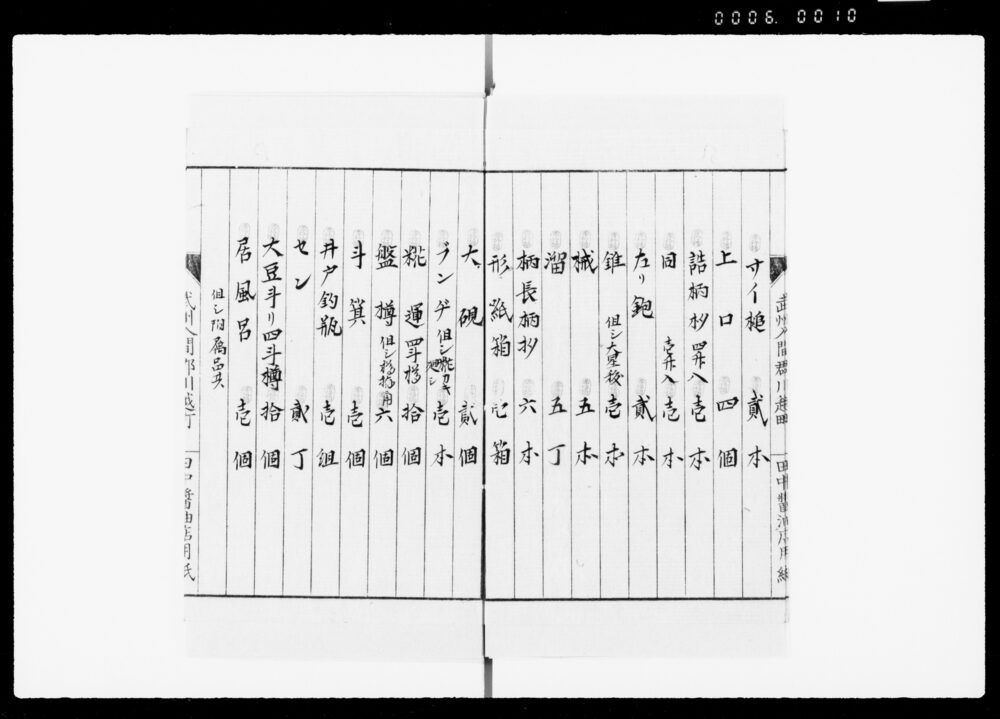 0006. 0010
武州入間郡川越町 田中醤油店用紙
サイ槌 貳本
上口 四個
詰柄杓 四升入 壱本
同 壱升入 壱本
左り鉋 貳本
錐 但シ大星後 壱本
械 五本
溜 五丁
柄長柄抄 六本
形紙箱 壱箱
大硯 貳個
ブンヂ 但シ 壱本
糀運四斗樽 拾個
盤樽 但シ 用 六個
斗箕 壱個
井戸釣瓶 壱組
セン 貳丁
大豆斗リ四斗樽 拾個
居風呂 壱個
但シ附属品共
武州入間郡川越町 田中醤油店用紙